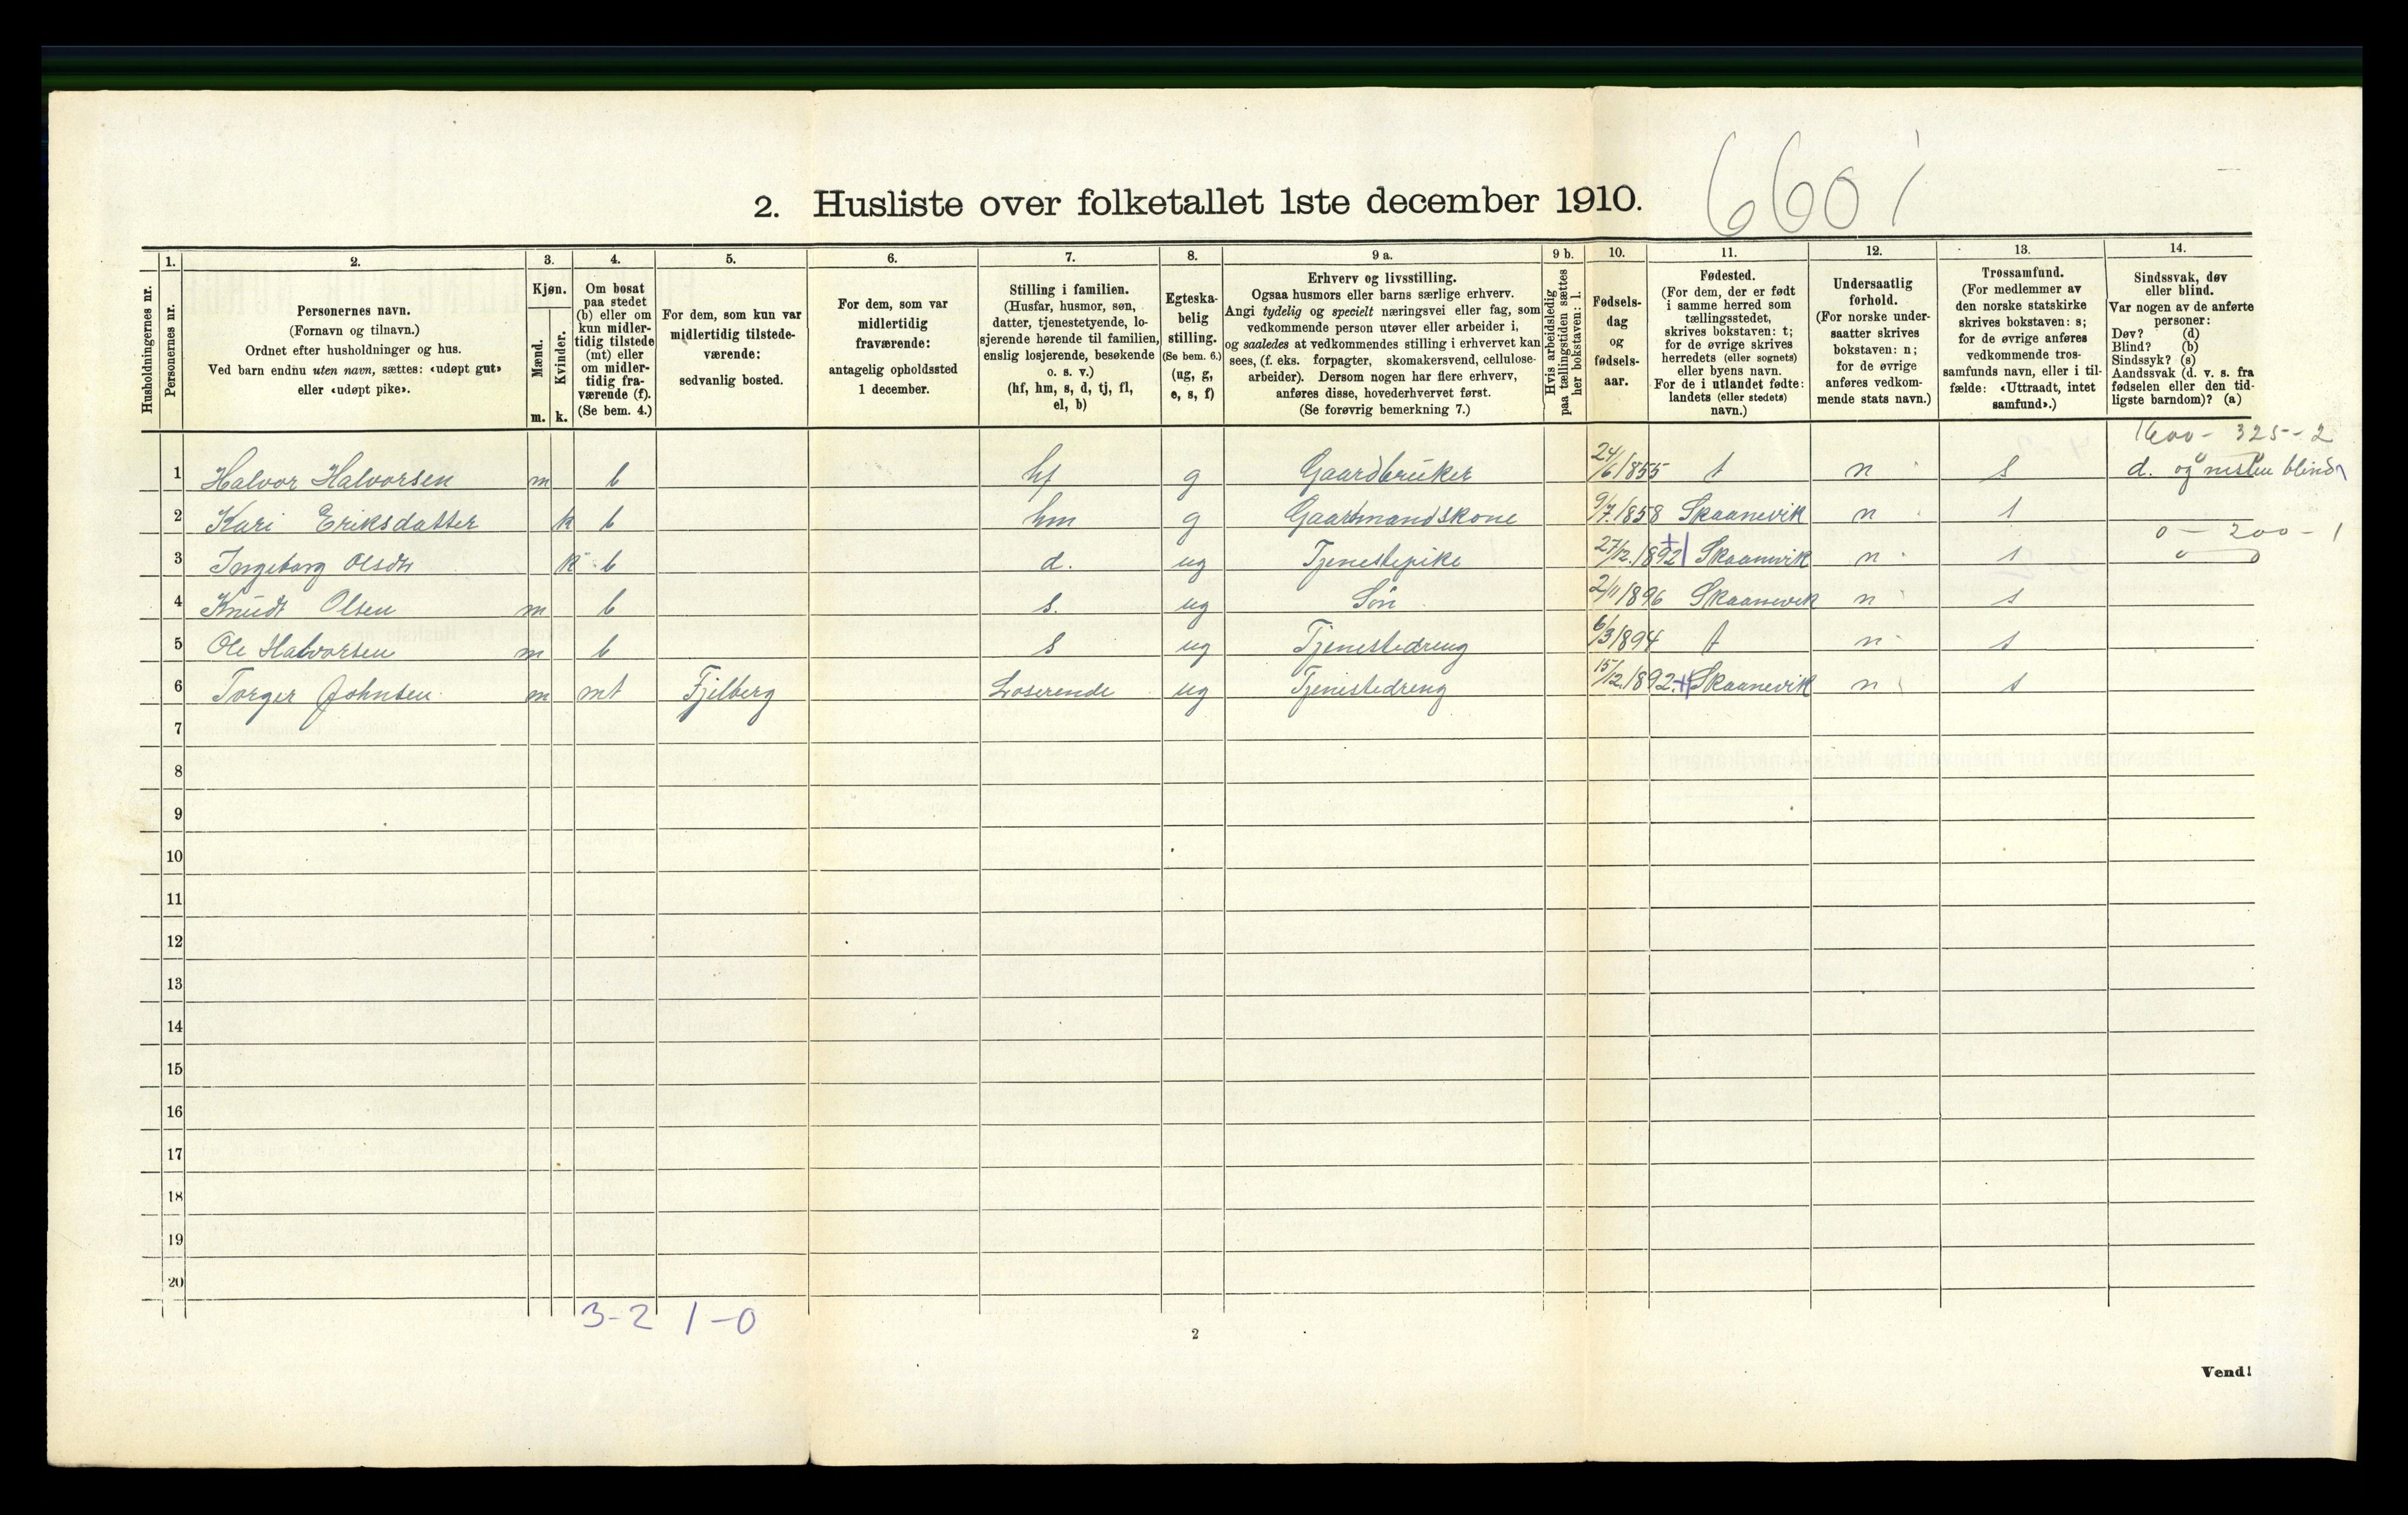 6601
2. Husliste over folketallet 1ste december 1910.
Husholdningernes nr.
1.
Personernes nr.
2.
Personernes navn.
(Fornavn og tilnavn.)
Ordnet efter husholdninger og hus.
Ved barn endnu uten navn, sættes: «udøpt gut»
eller «udøpt pike».
3.
Kjøn.
Mænd.
Kvinder.
m. k.
4.
Om bosat
paa stedet
(b) eller om
kun midler-
tidig tilstede
(mt) eller
om midler-
tidig fra-
værende (f).
(Se bem. 4.)
5.
For dem, som kun var
midlertidig tilstede-
værende:
sedvanlig bosted.
6.
For dem, som var
midlertidig
fraværende:
antagelig opholdssted
1 december.
7.
Stilling i familien.
(Husfar, husmor, søn,
datter, tjenestetyende, lo-
sjerende hørende til familien,
enslig losjerende, besøkende
o. s. v.)
(hf, hm, s, d, tj, fl,
el, b)
8.
Egteska-
belig
stilling.
(Se bem. 6.)
(ug, g,
e, s, f)
9 a.
Erhverv og livsstilling.
Ogsaa husmors eller barns særlige erhverv.
Angi tydelig og specielt næringsvei eller fag, som
vedkommende person utøver eller arbeider i,
og saaledes at vedkommendes stilling i erhvervet kan
sees, (f. eks. forpagter, skomakersvend, cellulose-
arbeider). Dersom nogen har flere erhverv,
anføres disse, hovederhvervet først.
(Se forøvrig bemerkning 7.)
9 b.
Hvis arbeidsledig
paa tællingstiden sættes
her bokstaven: l.
10.
Fødsels-
dag
og
fødsels-
aar.
11.
Fødested.
(For dem, der er født
i samme herred som
tællingsstedet,
skrives bokstaven: t;
for de øvrige skrives
herredets (eller sognets)
eller byens navn.
For de i utlandet fødte:
landets (eller stedets)
navn.)
12.
Undersaatlig
forhold.
(For norske under-
saatter skrives
bokstaven: n;
for de øvrige
anføres vedkom-
mende stats navn.)
13.
Trossamfund.
(For medlemmer av
den norske statskirke
skrives bokstaven: s;
for de øvrige anføres
vedkommende tros-
samfunds navn, eller i til-
fælde: «Uttraadt, intet
samfund».)
14.
Sindssvak, døv
eller blind.
Var nogen av de anførte
personer:
Døv? (d)
Blind? (b)
Sindssyk? (s)
Aandssvak (d. v. s. fra
fødselen eller den tid-
ligste barndom)? (a)
1600 - 325 - 2
1 Halvor Halvorsen m b hf g Gaardbruker 24/6 1855 t n s d. og nesten blind
2 Kari Eriksdatter k b hm g Gaardmandskone 9/7. 1858 Skaanevik n s
0 - 200 - 1
3 Ingeborg Olsdtr k b d. ug Tjenestepike 27/12. 1892 Skaanevik n s
4 Knudt Olsen m b s. ug Søn 2/11 1896 Skaanevik n s
5 Ole Halvorsen m b s ug Tjenestedreng 6/3 1894 t n s
6 Torger Johnsen m mt Fjelberg Loserende ug Tjenestedreng 15/12. 1892. Skaanevik n s
7
8
9
10
11
12
13
14
15
16
17
18
19
20
3-2 1-0
2
Vend!